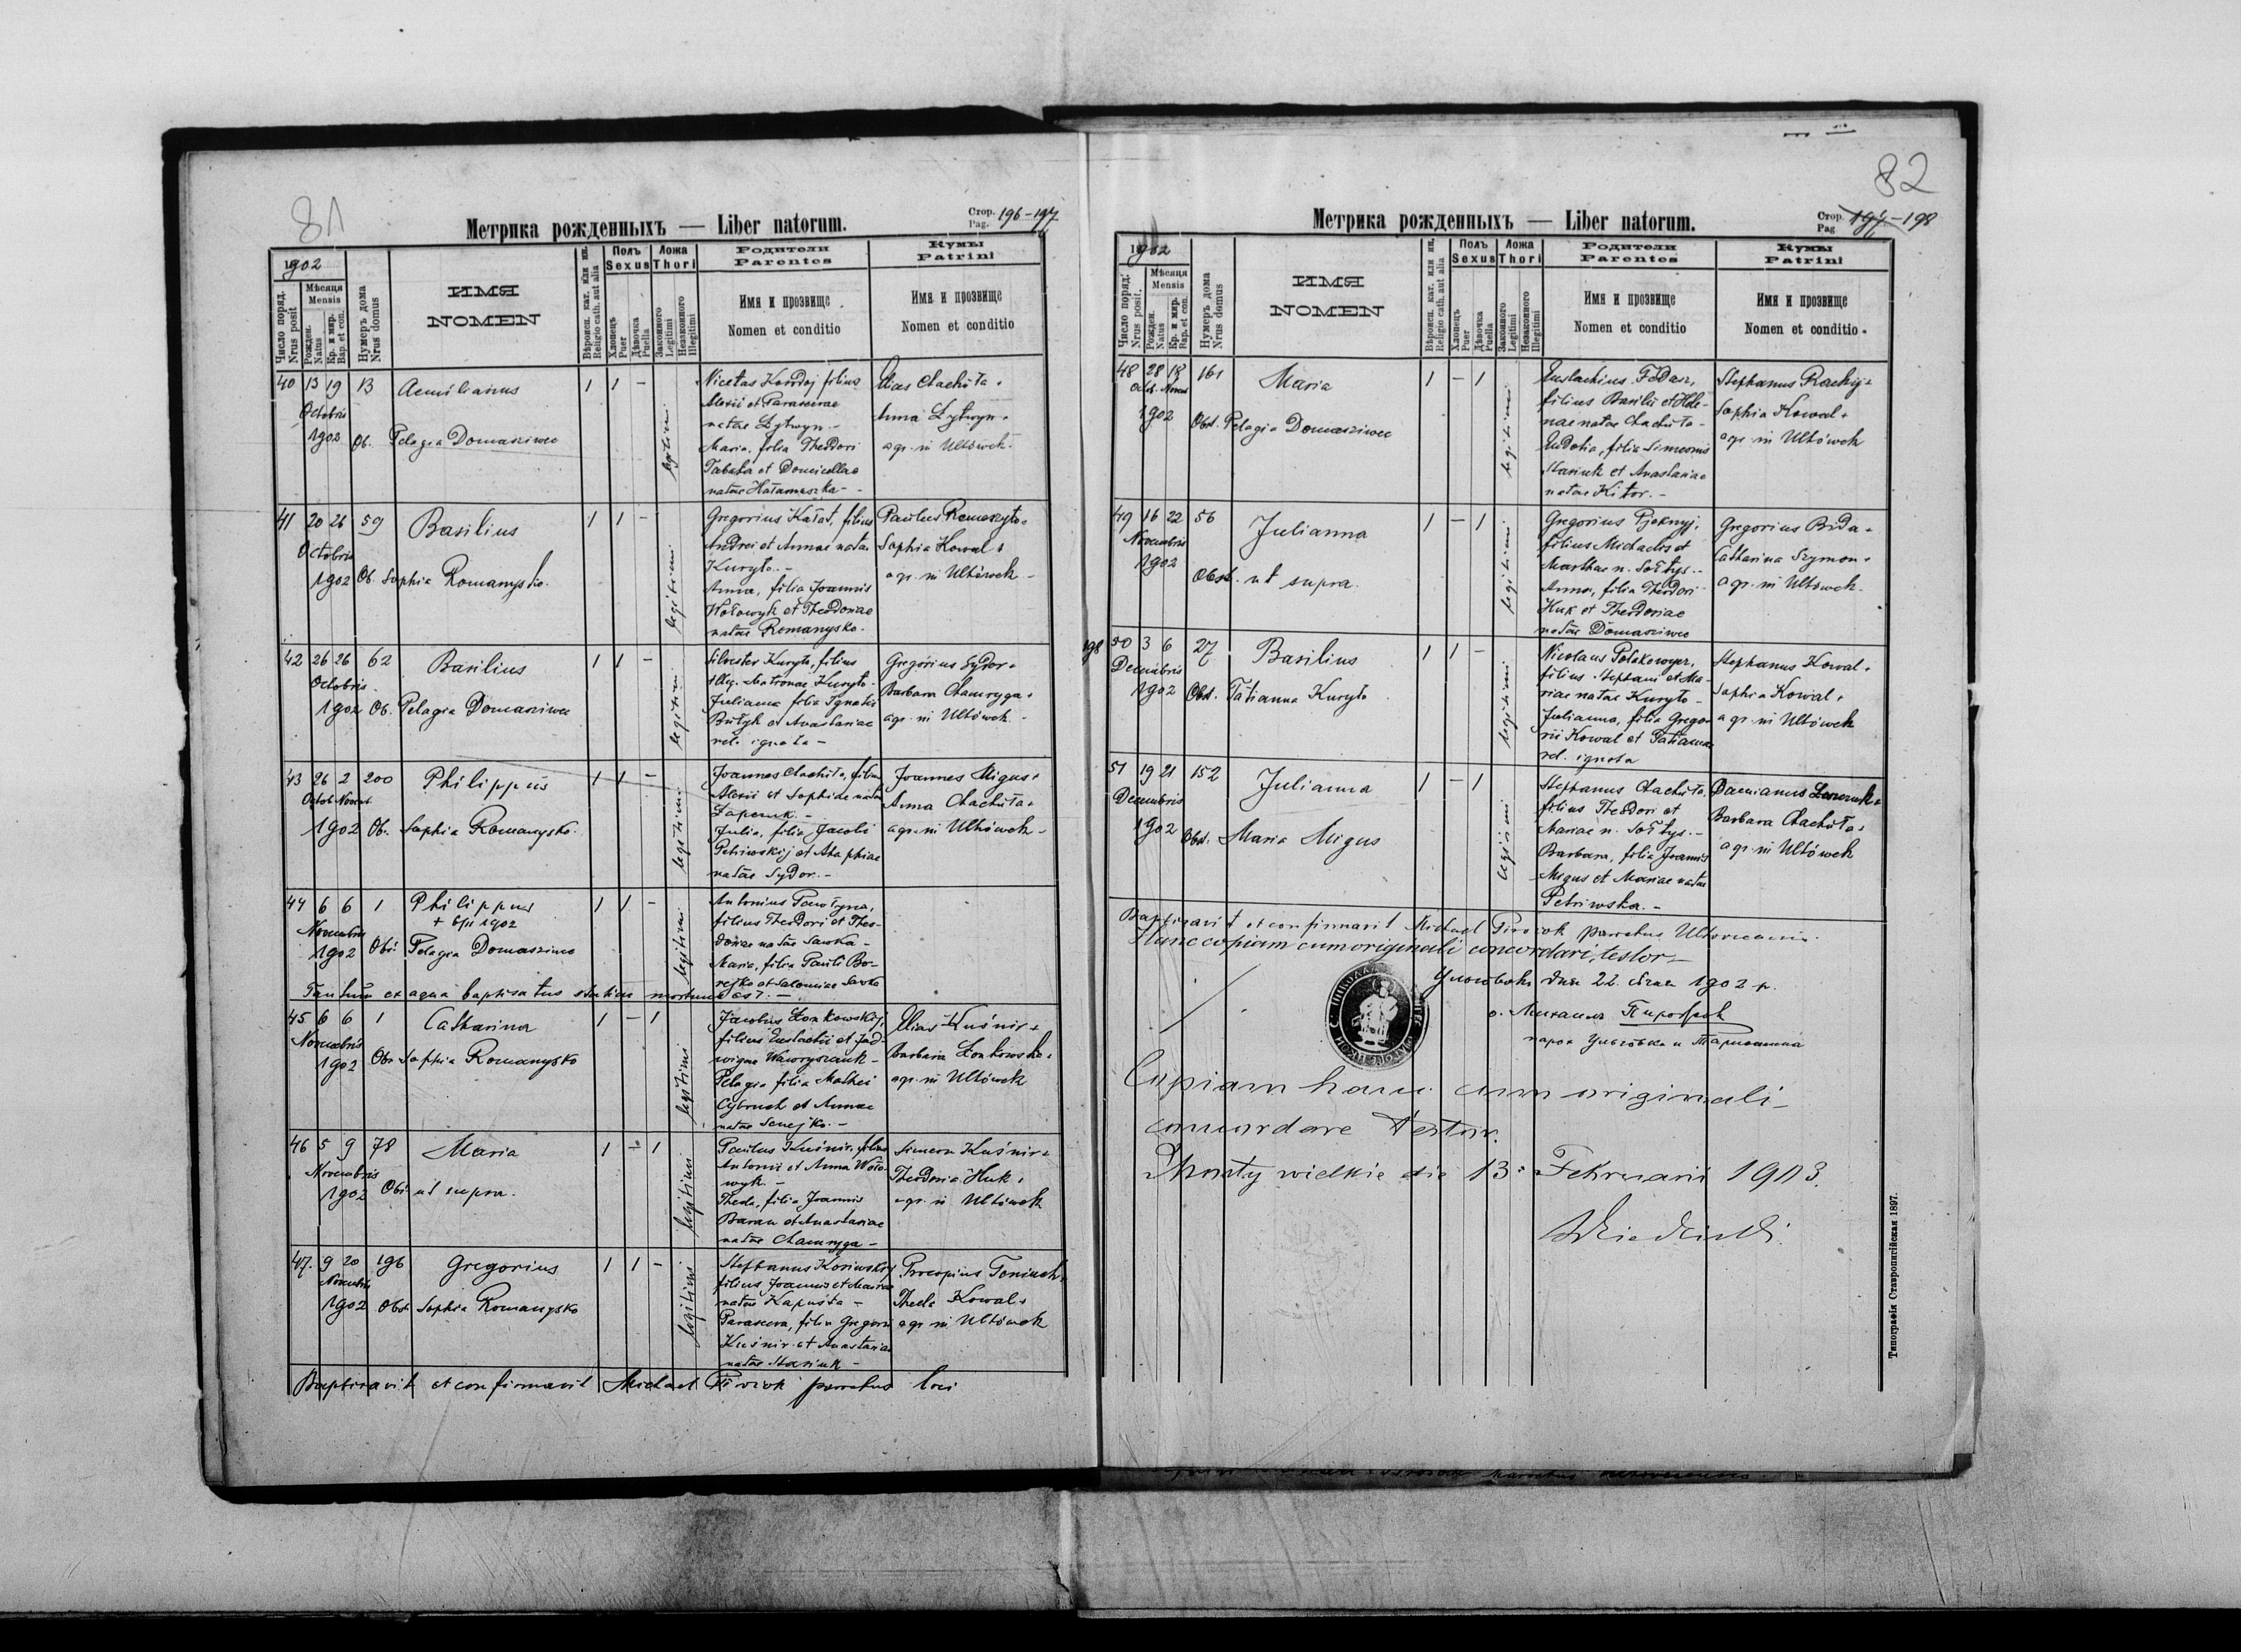 81
Метрика рожденныхъ — Liber natorum.
Стор. Pag. 196-197
1902
Число поряд. Nrus posit
Мѣсяця Mensis
Рожден. Natus
Кр. и мир. Bap. et con.
Нумеръ дома Nrus domus
ИМЯ
NOMEN
Вѣроисп. кат. или ин. Religio cath. aut alia
Полъ Sexus
Хлопецъ Puer
Дѣвочка Puella
Ложа Thori
Законного Legitimi
Незаконного Illegitimi
Родители
Parentes
Имя и прозвище
Nomen et conditio
Кумы
Patrini
Имя и прозвище
Nomen et conditio
40 13 19 13 Aemilianus 1 1 -
Octobris
1902 Ob. Pelagia Domasziwec
legitimi
Nicetas Kordoj filius
Alexii et Parascevae
natae Lytwyn -
Maria, filia Theodori
Tabaka et Domicellae
natae Hałamaszka -
Elias Chachuła +
Anna Lytwyn +
agr. in Uhłówek -
41 20 26 59 Basilius 1 1 -
Octobris
1902 Ob. Sophia Romanysko.
legitimi
Gregorius Kałat, filius
Andrei et Annae natae
Kuryło. -
Anna, filia Joannis
Wołowyk et Theodoriae
natae Romanysko.
Paulus Romaszyło +
Sophia Kowal +
agr. in Uhłówek -
42 26 26 62 Basilius 1 1 -
Octobris
1902 Ob. Pelagia Domasziwec
legitimi
Silvester Kuryło, filius
illeg. Matronae Kuryło -
Julianna filia Ignatii
Bułyk et Anastasiae
rel. ignota -
Gregorius Sydor +
Barbara Chamryga +
agr. in Uhłówek -
43 26 2 200 Philippus 1 1 -
Octob. Novemb.
1902 Ob. Sophia Romanysko.
legitimi
Joannes Chachuła, filius
Alexii et Sophiae natae
Julia, filia Jacobi
Petriwskij et Ahaphiae
natae Sydor. -
Joannes Migus +
Anna Chachuła +
agr. in Uhłówek -
44 6 6 1 Philippus 1 1 -
+ 6/11 1902
Novembris
1902 Obs. Pelagia Domasziwec
legitimi
Antonius
filius Theodori et Theo-
doriae natae Sawka -
Maria, filia Pauli Bo-
rejko et Salomiae Sawka
Tantum ex aqua baptisatus statim mortuus est. -
45 6 6 1 Catharina 1 - 1
Novembris
1902 Obs. Sophia Romanysko
legitimi
Jacobus Łonkowskij,
filius Eustachii et Jad-
wigae Wawryszczuk -
Pelagia filia Mathei
Cybruch et Annae
natae Senejko. -
Elias Kuśnir +
Barbara Łonkowska +
agr. in Uhłówek
46 5 9 78 Maria 1 - 1
Novembris
1902 Obs. ut supra.
legitimi
Paulus Kuśnir, filius
Antonii et Anna Woło-
wyk -
Thecla, filia Joannis
Baran et Anastasiae
natae Chamryga -
Simeon Kuśnir +
Theodoria Huk +
agr. in Uhłówek
47. 9 20 196 Gregorius 1 1 -
Novembris
1902 Obst. Sophia Romanysko
legitimi
Stephanus Kosiwskij
filius Joannis et Mariae
natae Kapusta -
Parasceva, filia Gregorii
Kuśnir et Anastasiae
natae Stasiuk -
Procopius Toniuch +
Thecla Kowal +
agr. in Uhłówek
Baptisavit et confirmavit Michael Pirożok parochus loci
82
Метрика рожденныхъ — Liber natorum.
Стор. Pag 197-198
1902
Число поряд: Nrus posit.
Мѣсяця Mensis
Рожден. Natus
Кр. и мир. Bap. et con.
Нумеръ дома Nrus domus
ИМЯ
NOMEN
Вѣроисп. кат. или ин. Religio cath. aut alia
Полъ Sexus
Хлопецъ Puer
Дѣвочка Puella
Ложа Thori
Законного Legitimi
Незаконного Illegitimi
Родители
Parentes
Имя и прозвище
Nomen et conditio
Кумы
Patrini
Имя и прозвище
Nomen et conditio
48 28 18 161 Maria 1 - 1
Octob. Novem
1902 Obst. Pelagia Domasziwec
legitimi
Eustachius Fedasz,
filius Basilii et Hele-
nae natae Chachuła -
Eudokia, filia Simeonis
Stasiuk et Anastasiae
natae Kitor. -
Stephanus Rachij +
Sophia Kowal +
agr. in Uhłówek
49 16 22 56 Julianna 1 - 1
Novembris
1902 Obst. ut supra.
legitimi
Gregorius Pjeknyj,
filius Michaelis et
Marthae n. Sołtys. -
Anna, filia Theodori
Huk et Theodoriae
natae Domasziwec
Gregorius Bida +
Catharina Szymon +
agr. in Uhłówek.
198
50 3 6 27 Basilius 1 1 -
Decembris
1902 Obst. Tatianna Kuryło
legitimi
Nicolaus Polakowycz,
filius Stephani et Ma-
riae natae Kuryło -
Julianna, filia Grego-
rii Kowal et Tatianna
rel. ignota
Stephanus Kowal +
Sophia Kowal +
agr. in Uhłówek
51 19 21 152 Julianna 1 - 1
Decembris
1902 Obst. Maria Migus
legitimi
Stephanus Chachuła,
filius Theodori et
Mariae n. Sołtys. -
Barbara, filia Joannis
Migus et Mariae natae
Petriwska. -
Damianus
Barbara Chachuła +
agr. in Uhłówek
Baptisavit et confirmavit Michael Pirożok parochus
Hanc copiam cum originali concordari, testor -
дня 22 1902 р.
о. Михаилъ Пирожок
парох
Copiam hanc cum originali
concordare testor.
Żurniaty wielkie die 13: Februarii 1903.
Типографія Ставропигійская 1897.